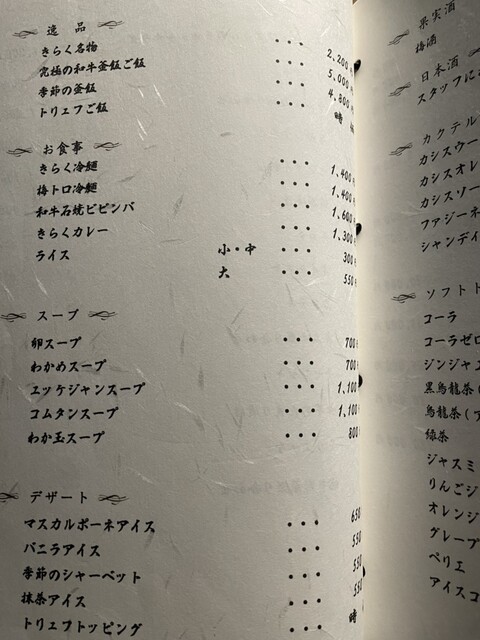 逸品
きらく名物 ・・・ 2,200円
究極の和牛釜飯ご飯 ・・・ 5,000円
季節の釜飯 ・・・ 4,800円
トリュフご飯 ・・・ 時
お食事
きらく冷麺 ・・・ 1,400円
梅トロ冷麺 ・・・ 1,400円
和牛石焼ビビンバ ・・・ 1,600円
きらくカレー ・・・ 1,300円
ライス 小・中 ・・・ 300円
大 ・・・ 550
スープ
卵スープ ・・・ 700
わかめスープ ・・・ 700
ユッケジャンスープ ・・・ 1,100
コムタンスープ ・・・ 1,100
わか玉スープ ・・・ 800
デザート
マスカルポーネアイス ・・・ 650
バニラアイス ・・・ 550
季節のシャーベット ・・・ 550
抹茶アイス ・・・ 550
トリュフトッピング ・・・ 時
果実酒
梅酒
日本酒
スタッフに
カクテル
カシスウー
カシスオレ
カシスソー
ファジーネ
シャンディ
ソフト
コーラ
コーラゼロ
ジンジャエ
黒烏龍茶(
烏龍茶(ア
緑茶
ジャスミ
りんごジ
オレンジ
グレープ
ペリエ
アイスコ